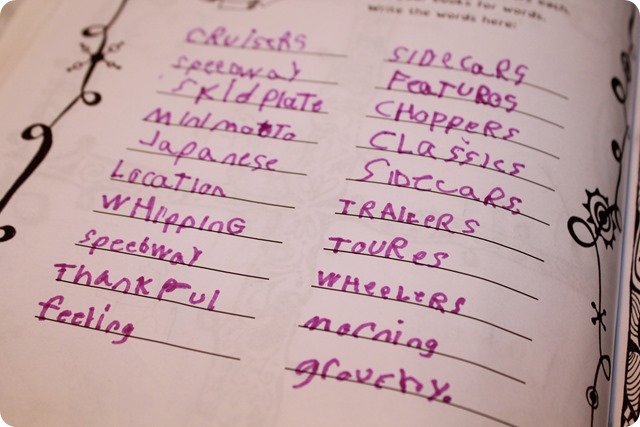 books for words.
Write the words here:
CRUISERS
SPEEDWAY
SKIDPLATE
MINIMOTO
Japanese
Location
WHIPPING
SPEEDWAY
THANKFUL
feeling
SIDECARS
FEATURES
CHOPPERS
CLASSICS
SIDECARS
TRAILERS
TOURES
WHEELERS
morning
grouchy.